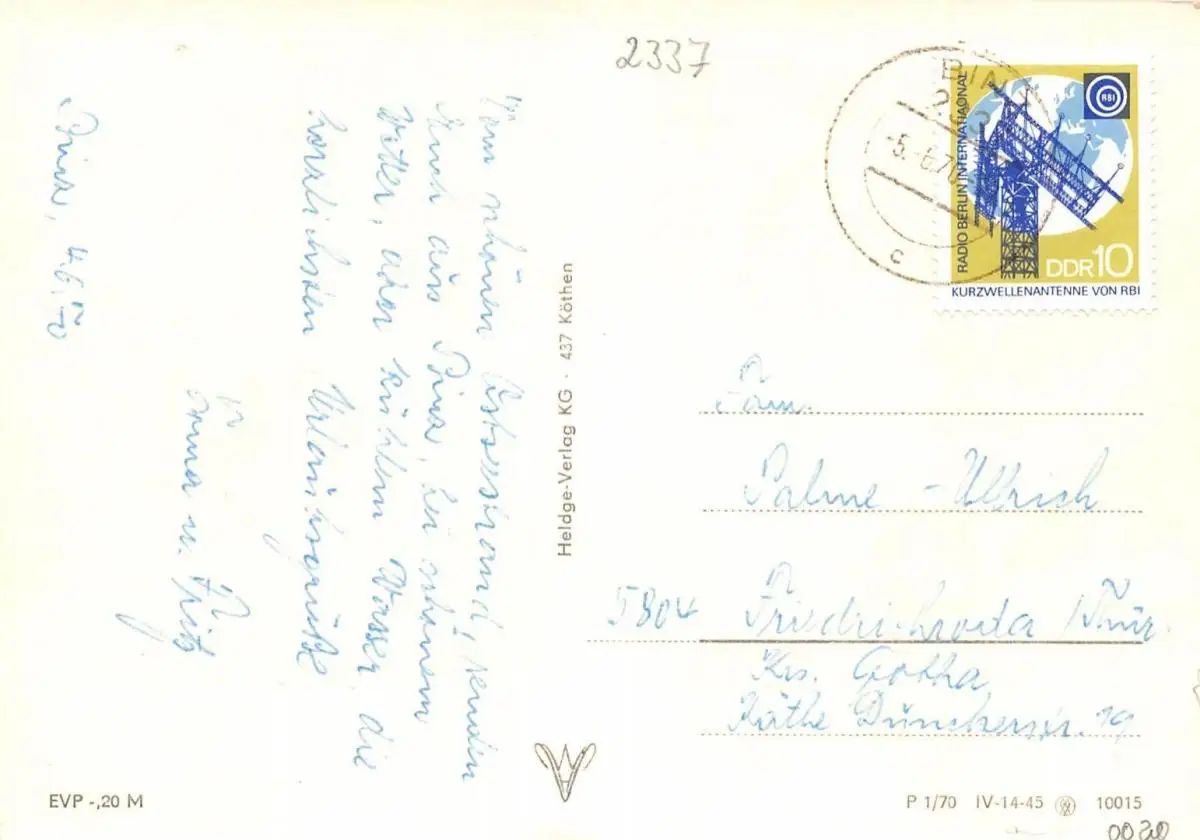 2337
Binz, 4.6.70
Vom schönen Ostseestrand, senden
Euch aus Binz, bei schönem
Wetter, aber kühlem Wasser die
herzlichsten Urlaubsgrüße
Irma u. Fritz
Heldge-Verlag KG · 437 Köthen
BINZ
-5.-6.70
c
RADIO BERLIN INTERNATIONAL
RBI
DDR 10
KURZWELLENANTENNE VON RBI
Fam.
Palme - Ullrich
5804 Friedrichroda / Thür.
Krs. Gotha
Käthe Dunckerstr. 19
EVP -,20 M
P 1/70 IV-14-45 10015
0020